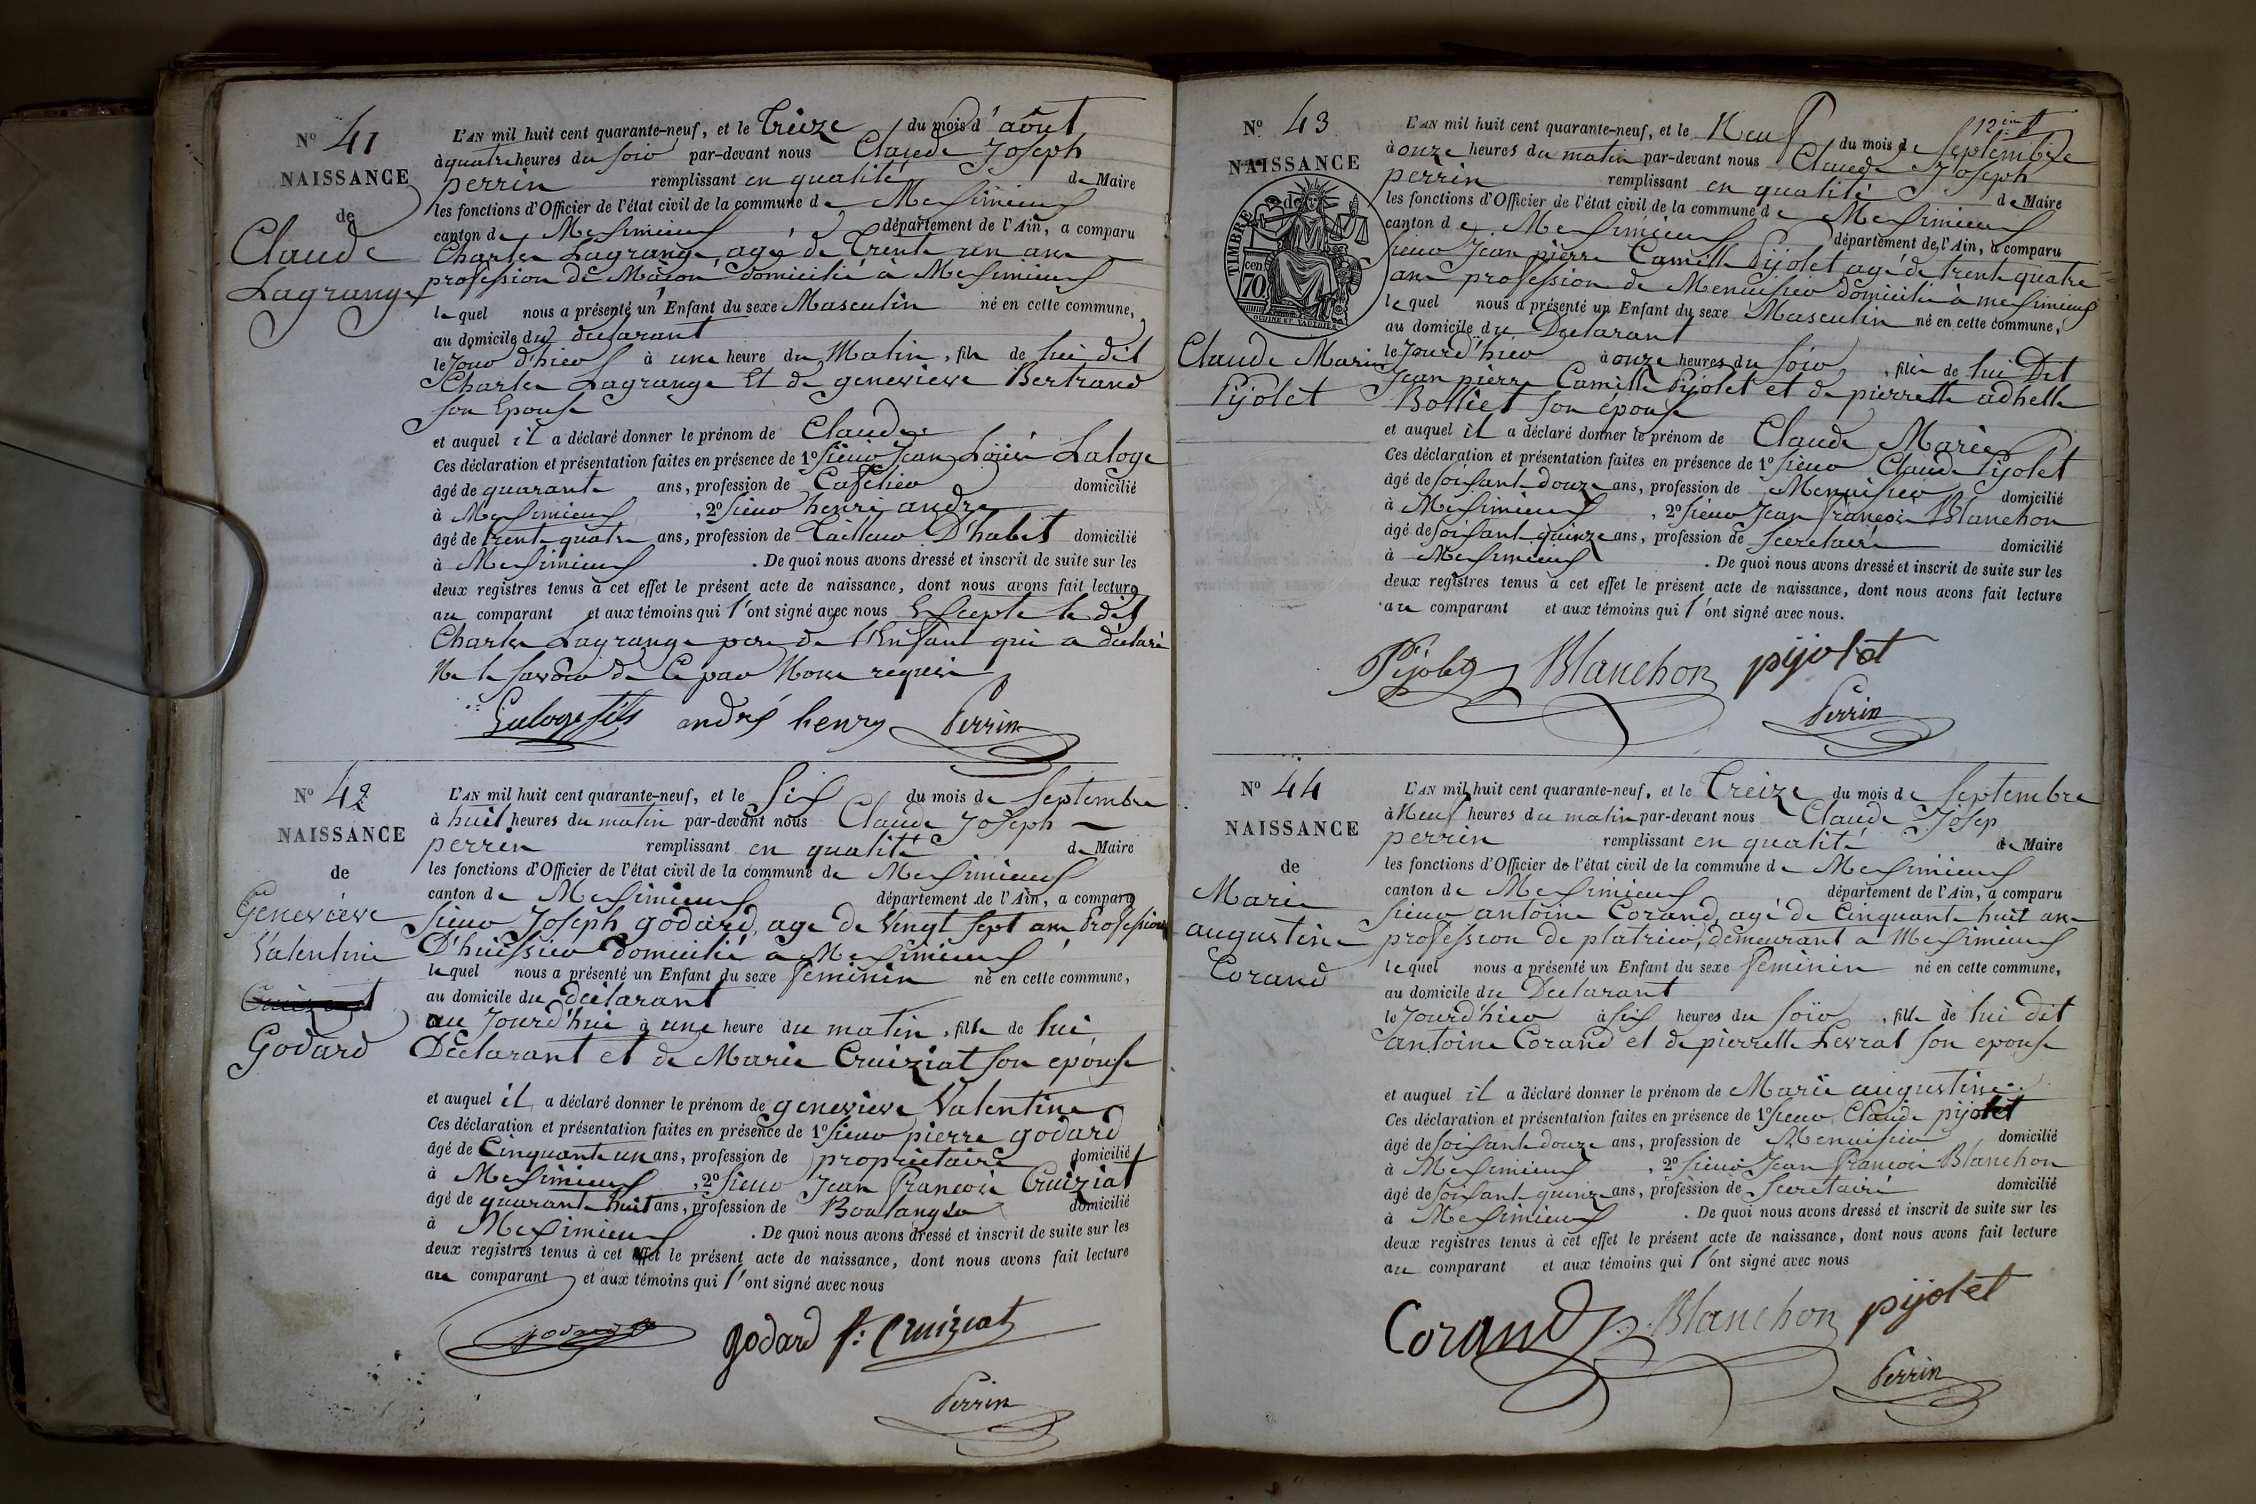 N° 41
NAISSANCE
de
Claude
Lagrange
L'AN mil huit cent quarante-neuf, et le Treize du mois d'août
à quatre heures du soir par-devant nous Claude Joseph
perrin remplissant en qualité de Maire
les fonctions d'Officier de l'état civil de la commune de Meximieux
canton de Meximieux département de l'Ain, a comparu
Charles Lagrange, agé de Trente un ans
profession de Maçon domicilié a Meximieux
lequel nous a présenté un Enfant du sexe Masculin né en cette commune,
au domicile du déclarant
le Jour d'hier à une heure du Matin, fils de lui dit
Charles Lagrange Et de genevieve Bertrand
son Epouse
et auquel il a déclaré donner le prénom de Claude
Ces déclaration et présentation faites en présence de 1° sieur Jean Loüis Laloge
âgé de quarante ans, profession de Caffetier domicilié
à Meximieux, 2° sieur henri andre
âgé de trente quatre ans, profession de Tailleur D'habit domicilié
à Meximieux. De quoi nous avons dressé et inscrit de suite sur les
deux registres tenus à cet effet le présent acte de naissance, dont nous avons fait lecture
au comparant et aux témoins qui l'ont signé avec nous Excepte le dit
Charles Lagrange pere de l'Enfant qui a déclaré
Ne le savoir de Ce par Nous requis
Laloge fils andré henry Perrin
N° 42
NAISSANCE
de
Genevieve
Valentine
Godard
L'AN mil huit cent quarante-neuf, et le Six du mois de Septembre
à huit heures du matin par-devant nous Claude Joseph
perrin remplissant en qualité de Maire
les fonctions d'Officier de l'état civil de la commune de Meximieux
canton de Meximieux département de l'Ain, a comparu
sieur Joseph godard, age de Vingt sept ans Profession
D'huissier domicilié a Meximieux
lequel nous a présenté un Enfant du sexe feminin né en cette commune,
au domicile du déclarant
au Jourd'hui à une heure du matin, fille de lui
Déclarant et de Marie Cruiziat son epouse
et auquel il a déclaré donner le prénom de genevieve Valentine
Ces déclaration et présentation faites en présence de 1° sieur pierre godard
âgé de Cinquante un ans, profession de propriétaire domicilié
à Meximieux, 2° sieur Jean françois Cruiziat
âgé de quarante huit ans, profession de Boulanger domicilié
à Meximieux. De quoi nous avons dressé et inscrit de suite sur les
deux registres tenus à cet effet le présent acte de naissance, dont nous avons fait lecture
au comparant et aux témoins qui l'ont signé avec nous
godard godard f: Cruiziat
Perrin
N° 43
NAISSANCE
de
TIMBRE
70
cen
Claude Marie
Pijolet
L'AN mil huit cent quarante-neuf, et le Neuf du mois de Septembre
à onze heures du matin par-devant nous Claude Joseph
perrin remplissant en qualité de Maire
les fonctions d'Officier de l'état civil de la commune de Meximieux
canton de Meximieux département de l'Ain, a comparu
sieur Jean pierre Camille Pijolet agé de trente quatre
ans profession de Menuisier domicilié à meximieux
lequel nous a présenté un Enfant du sexe Masculin né en cette commune,
au domicile du Déclarant
le Jourd'hier à onze heures du soir, fils de lui Dit
Jean pierre Camille Pijolet et de pierrette adhelle
Bolliet son épouse
et auquel il a déclaré donner le prénom de Claude Marie
Ces déclaration et présentation faites en présence de 1° sieur Claude Pijolet
âgé de soixante douze ans, profession de Menuisier domicilié
à Meximieux, 2° sieur Jean françois Blanchon
âgé de soixante quinze ans, profession de secretaire domicilié
à Meximieux. De quoi nous avons dressé et inscrit de suite sur les
deux registres tenus à cet effet le présent acte de naissance, dont nous avons fait lecture
au comparant et aux témoins qui l'ont signé avec nous.
Pijolet Blanchon pijolet
Perrin
N° 44
NAISSANCE
de
Marie
augustine
Corand
L'AN mil huit cent quarante-neuf, et le Treize du mois de Septembre
à Neuf heures du matin par-devant nous Claude Josep
perrin remplissant en qualité de Maire
les fonctions d'Officier de l'état civil de la commune de Meximieux
canton de Meximieux département de l'Ain, a comparu
sieur antoine Corand, agé de Cinquante huit ans
profession de platrier, demeurant a Meximieux
lequel nous a présenté un Enfant du sexe feminin né en cette commune,
au domicile du Déclarant
le Jourd'hier à six heures du soir, fille de lui dit
antoine Corand et de pierrette Levrat son epouse
et auquel il a déclaré donner le prénom de Marie augustine
Ces déclaration et présentation faites en présence de 1° sieur Claude pijolet
âgé de soixante douze ans, profession de Menuisier domicilié
à Meximieux, 2° sieur Jean françois Blanchon
âgé de soixante quinze ans, profession de Secretaire domicilié
à Meximieux. De quoi nous avons dressé et inscrit de suite sur les
deux registres tenus à cet effet le présent acte de naissance, dont nous avons fait lecture
au comparant et aux témoins qui l'ont signé avec nous
Corand Blanchon pijolet
Perrin